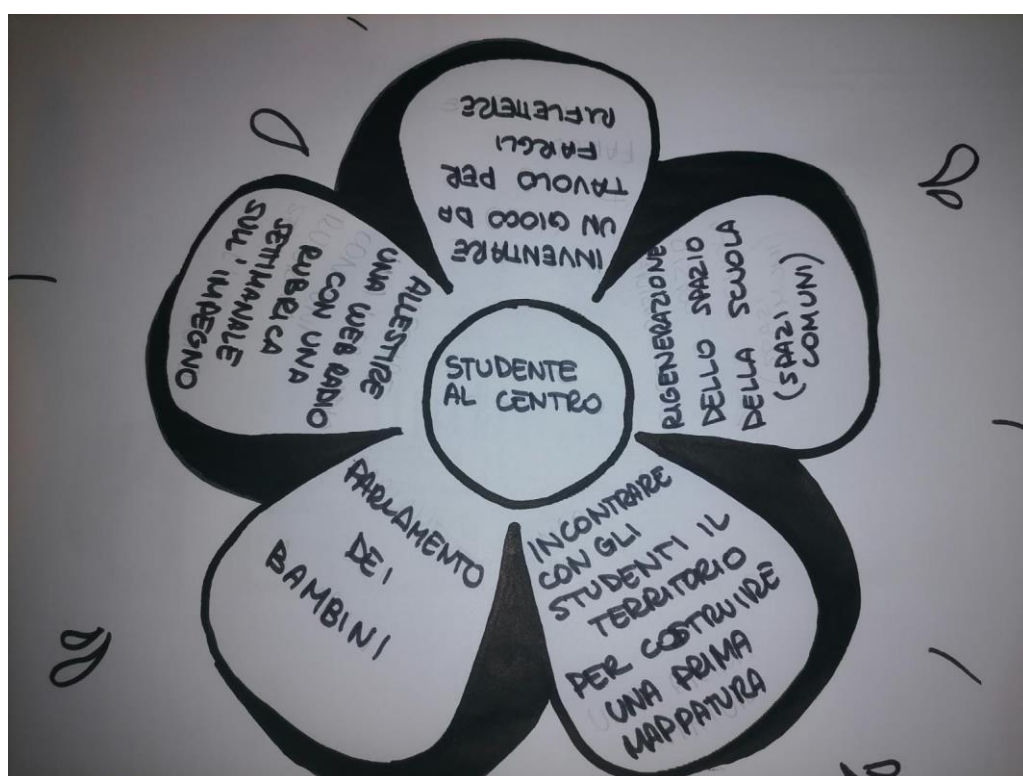 STUDENTE
AL CENTRO
INVENTARE
UN GIOCO DA
TAVOLO PER
FARGLI
RIFLETTERE
RIGENERAZIONE
DELLO SPAZIO
DELLA SCUOLA
(SPAZI
COMUNI)
INCONTRARE
CON GLI
STUDENTI IL
TERRITORIO
PER COSTRUIRE
UNA PRIMA
MAPPATURA
PARLAMENTO
DEI
BAMBINI
ALLESTIRE
UNA WEB RADIO
CON UNA
RUBRICA
SETTIMANALE
SULL'IMPEGNO